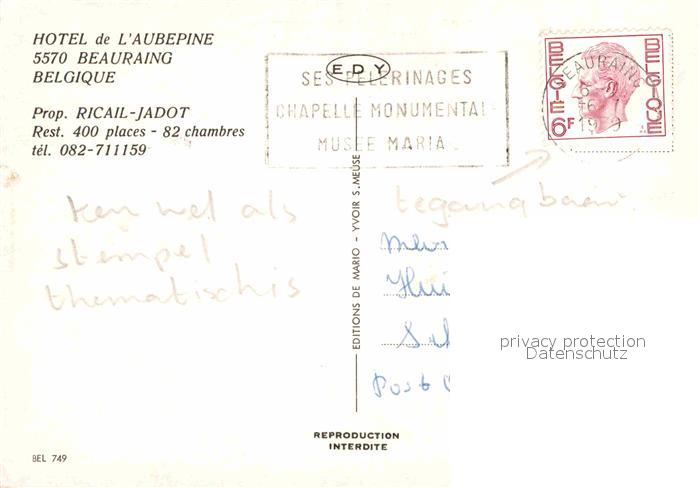 HOTEL de L'AUBEPINE
5570 BEAURAING
BELGIQUE
Prop. RICAIL-JADOT
Rest. 400 places - 82 chambres
tél. 082-711159
EDY
SES PELERINAGES
CHAPELLE MONUMENTAL
MUSEE MARIA
BELGIE
BELGIQUE
6F
BEAURAING
als
stempel
thematisch is
privacy protection
Datenschutz
EDITIONS DE MARIO - YVOIR S/MEUSE
REPRODUCTION
INTERDITE
BEL 749